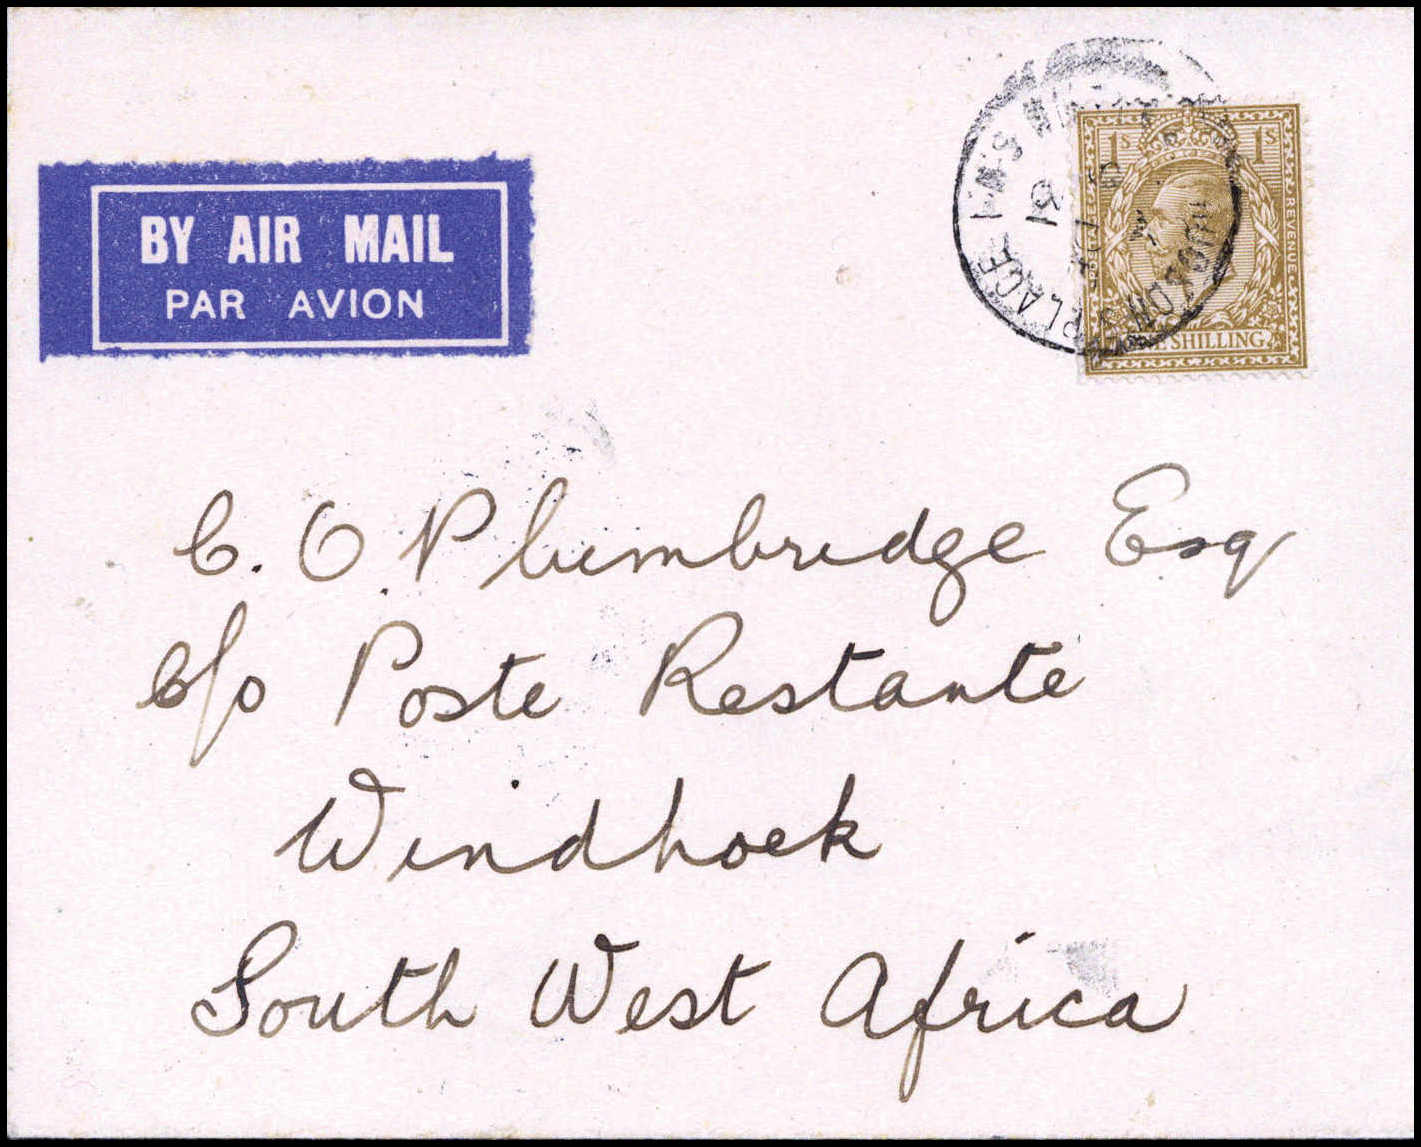 BY AIR MAIL
PAR AVION
1s 1s
REVENUE
SHILLING
HUDSONS PLACE S.W.1
31
C. O. Plumbridge Esq
c/o Poste Restante
Windhoek
South West Africa